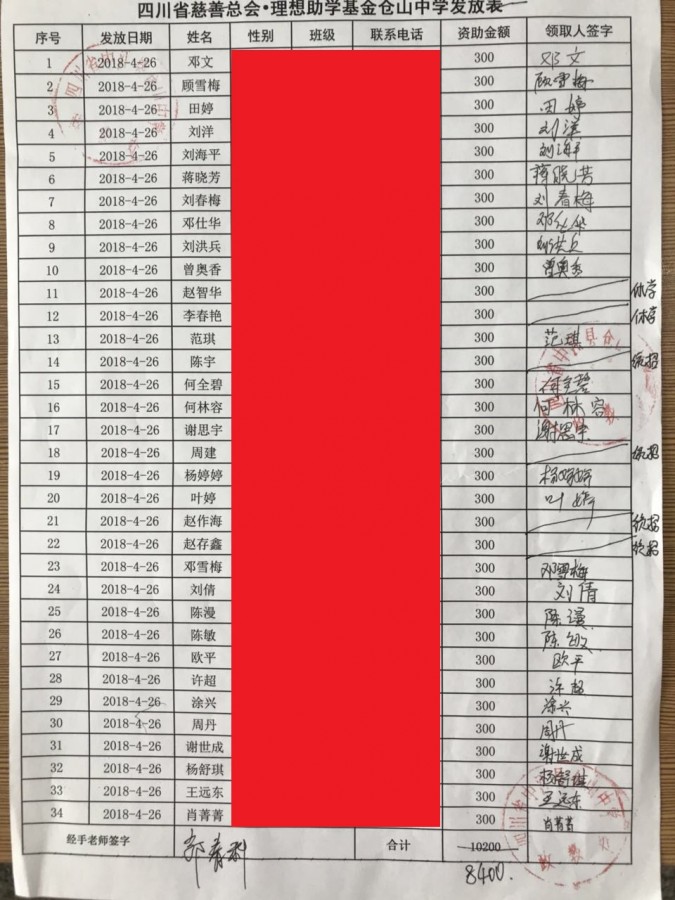 四川省慈善总会•理想助学基金仓山中学发放表
序号 发放日期 姓名 性别 班级 联系电话 资助金额 领取人签字
1 2018-4-26 邓文 300 邓文
2 2018-4-26 顾雪梅 300 顾雪梅
3 2018-4-26 田婷 300 田婷
4 2018-4-26 刘洋 300 刘洋
5 2018-4-26 刘海平 300 刘海平
6 2018-4-26 蒋晓芳 300 蒋晓芳
7 2018-4-26 刘春梅 300 刘春梅
8 2018-4-26 邓仕华 300 邓仕华
9 2018-4-26 刘洪兵 300 刘洪兵
10 2018-4-26 曾奥香 300 曾奥香
11 2018-4-26 赵智华 300 休学
12 2018-4-26 李春艳 300 休学
13 2018-4-26 范琪 300 范琪
14 2018-4-26 陈宇 300 统招
15 2018-4-26 何全碧 300 何全碧
16 2018-4-26 何林容 300 何林容
17 2018-4-26 谢思宇 300 谢思宇
18 2018-4-26 周建 300 统招
19 2018-4-26 杨婷婷 300 杨婷婷
20 2018-4-26 叶婷 300 叶婷
21 2018-4-26 赵作海 300 统招
22 2018-4-26 赵存鑫 300 统招
23 2018-4-26 邓雪梅 300 邓雪梅
24 2018-4-26 刘倩 300 刘倩
25 2018-4-26 陈漫 300 陈漫
26 2018-4-26 陈敏 300 陈敏
27 2018-4-26 欧平 300 欧平
28 2018-4-26 许超 300 许超
29 2018-4-26 涂兴 300 涂兴
30 2018-4-26 周丹 300 周丹
31 2018-4-26 谢世成 300 谢世成
32 2018-4-26 杨舒琪 300 杨舒琪
33 2018-4-26 王远东 300 王远东
34 2018-4-26 肖菁菁 300 肖菁菁
经手老师签字 合计 10200
8400.